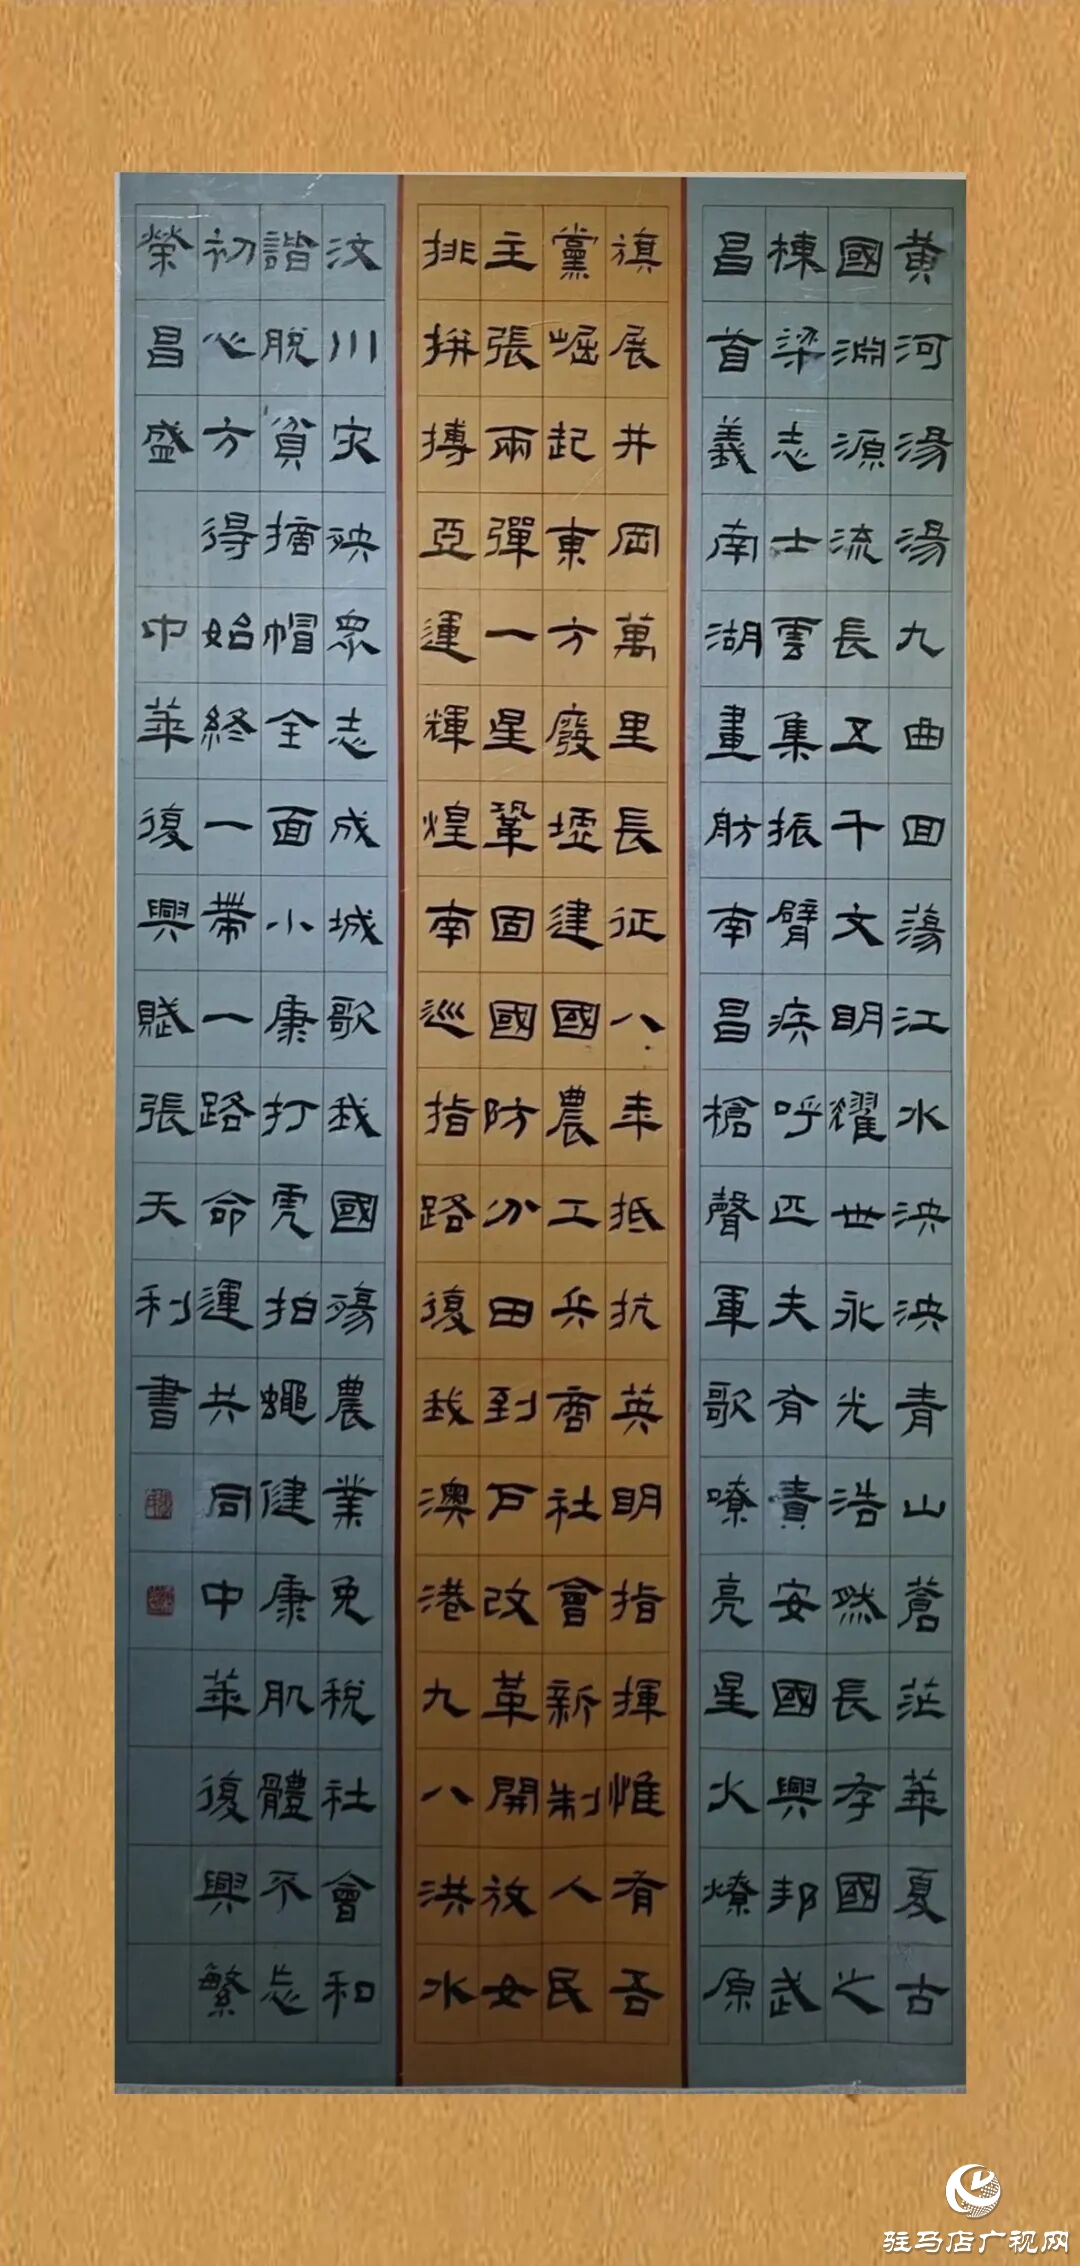 黄河湯湯九曲回蕩江水泱泱青山蒼茫華夏古
國淵源流長五千文明耀世永光浩然長存國之
棟梁志士雲集振臂疾呼匹夫有責安國興邦武
昌首義南湖畫舫南昌槍聲軍歌嘹亮星火燎原
旗展井岡萬里長征八年抵抗英明指揮惟有吾
黨崛起東方廢墟建國農工兵商社會新制人民
主張兩彈一星鞏固國防分田到戶改革開放女
排拼搏亞運輝煌南巡指路復我澳港九八洪水
汶川灾殃眾志成城歌我國殤農業免稅社會和
諧脫貧摘帽全面小康打虎拍蠅健康肌體不忘
初心方得始終一帶一路命運共同中華復興繁
榮昌盛 中華復興賦張天利書
驻马店广视网